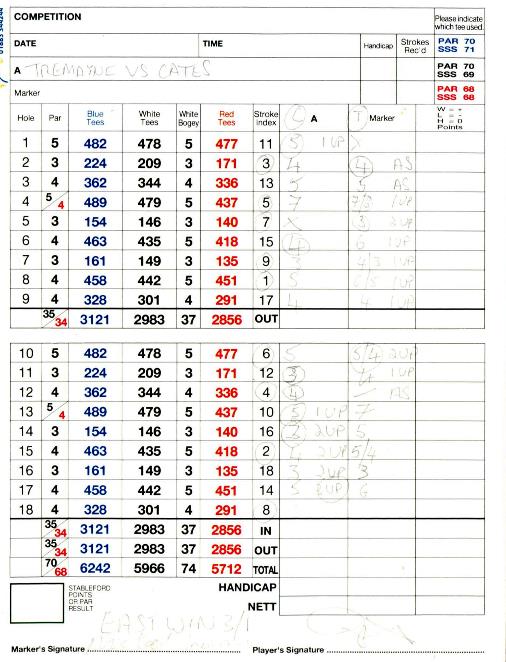 COMPETITION
Please indicate which tee used.
DATE TIME Handicap Strokes Rec'd PAR 70 SSS 71
A TREMAYNE VS CATES PAR 70 SSS 69
Marker PAR 68 SSS 68
Hole Par Blue Tees White Tees White Bogey Red Tees Stroke Index C A T Marker W = + L = – H = 0 Points
1 5 482 478 5 477 11 5 1UP X
2 3 224 209 3 171 3 4 4 AS
3 4 362 344 4 336 13 5 5 AS
4 5/4 489 479 5 437 5 7 1UP
5 3 154 146 3 140 7 X 3 2UP
6 4 463 435 5 418 15 4 6 1UP
7 3 161 149 3 135 9 4/3 1UP
8 4 458 442 5 451 1 5 6/5 1UP
9 4 328 301 4 291 17 4 4 1UP
35/34 3121 2983 37 2856 OUT
10 5 482 478 5 477 6 5 5/4 2UP
11 3 224 209 3 171 12 3 4 1UP
12 4 362 344 4 336 4 4 – AS
13 5/4 489 479 5 437 10 5 1UP 7
14 3 154 146 3 140 16 3 2UP 5
15 4 463 435 5 418 2 2UP 5/4
16 3 161 149 3 135 18 3 2UP 3
17 4 458 442 5 451 14 5 6
18 4 328 301 4 291 8
35/34 3121 2983 37 2856 IN
35/34 3121 2983 37 2856 OUT
70/68 6242 5966 74 5712 TOTAL
STABLEFORD POINTS OR PAR RESULT
HANDICAP
NETT
EAST WIN 3/1
Marker's Signature Player's Signature